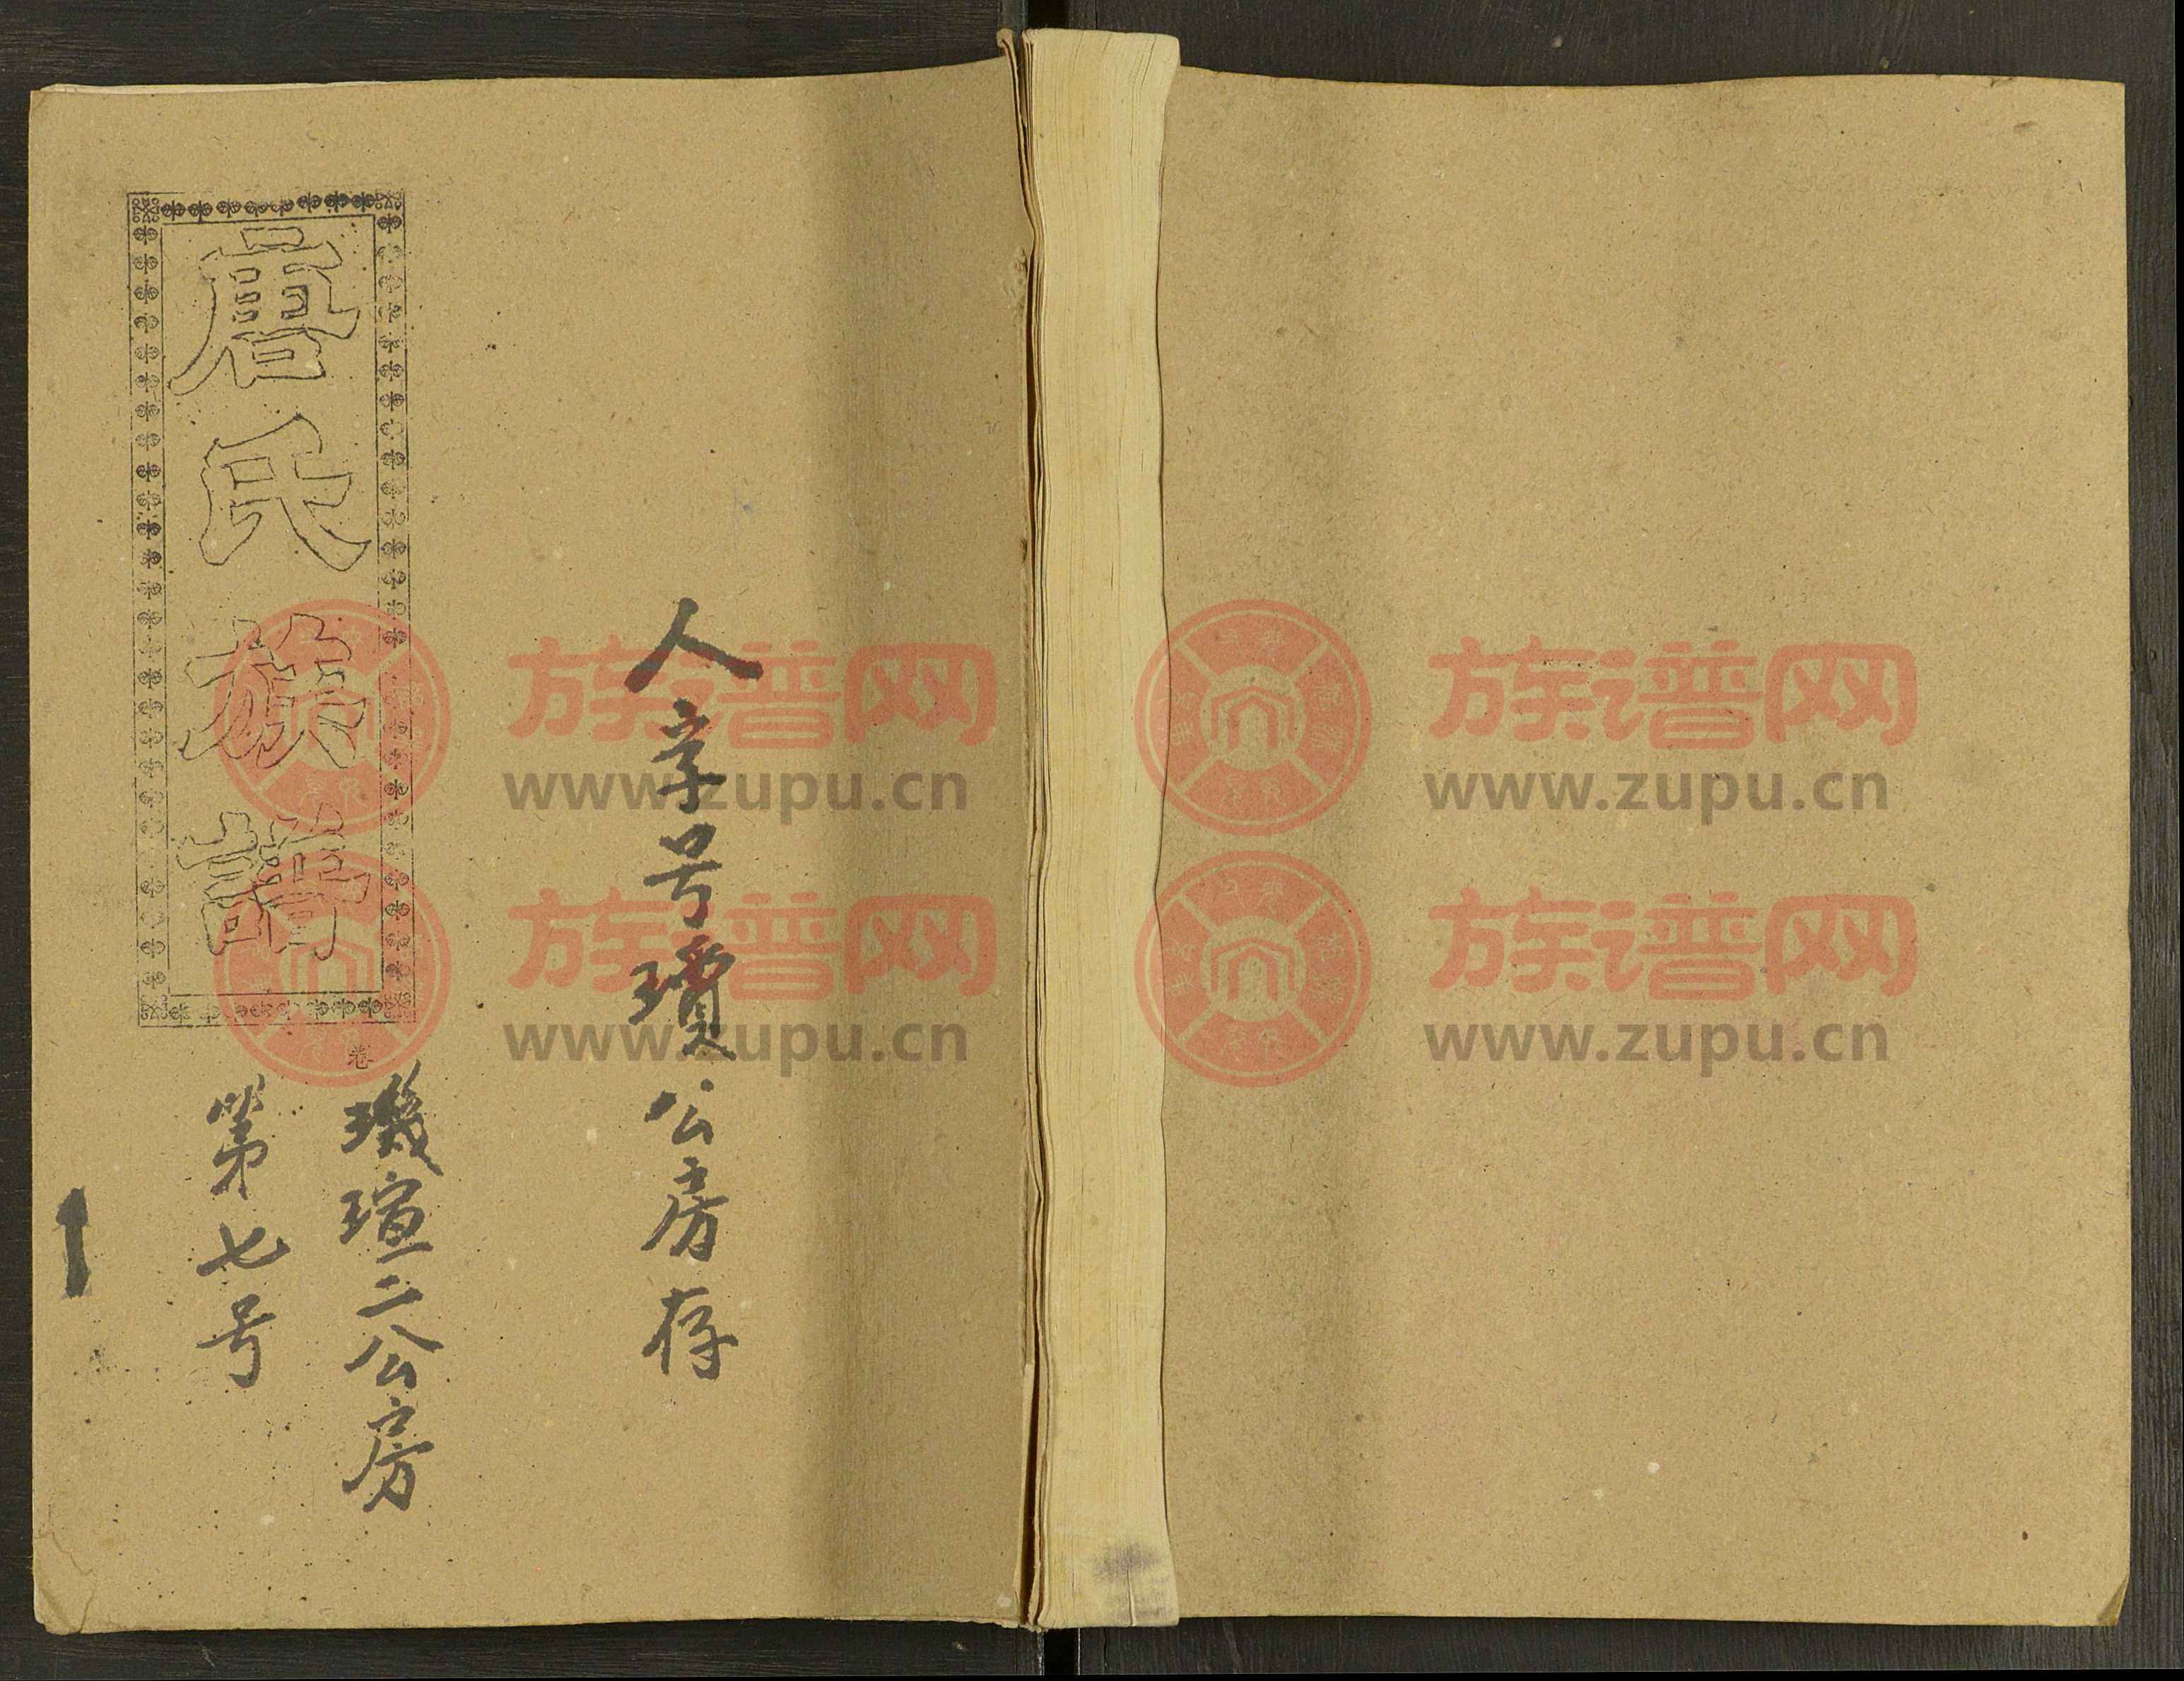 人字号璸公房存
唐氏族譜
卷
璣瑄二公房
第七号
族谱网
www.zupu.cn
族谱网
www.zupu.cn
族谱网
www.zupu.cn
族谱网
www.zupu.cn